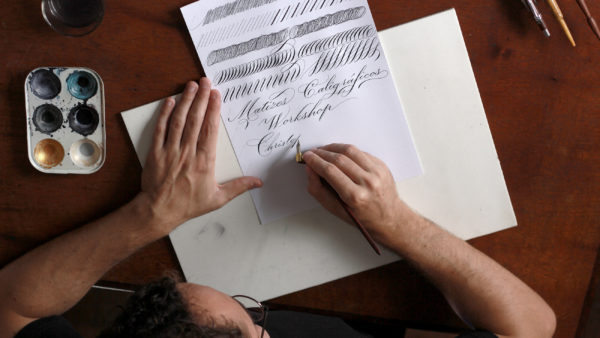 Matizes Caligráficos
Workshop
Christy